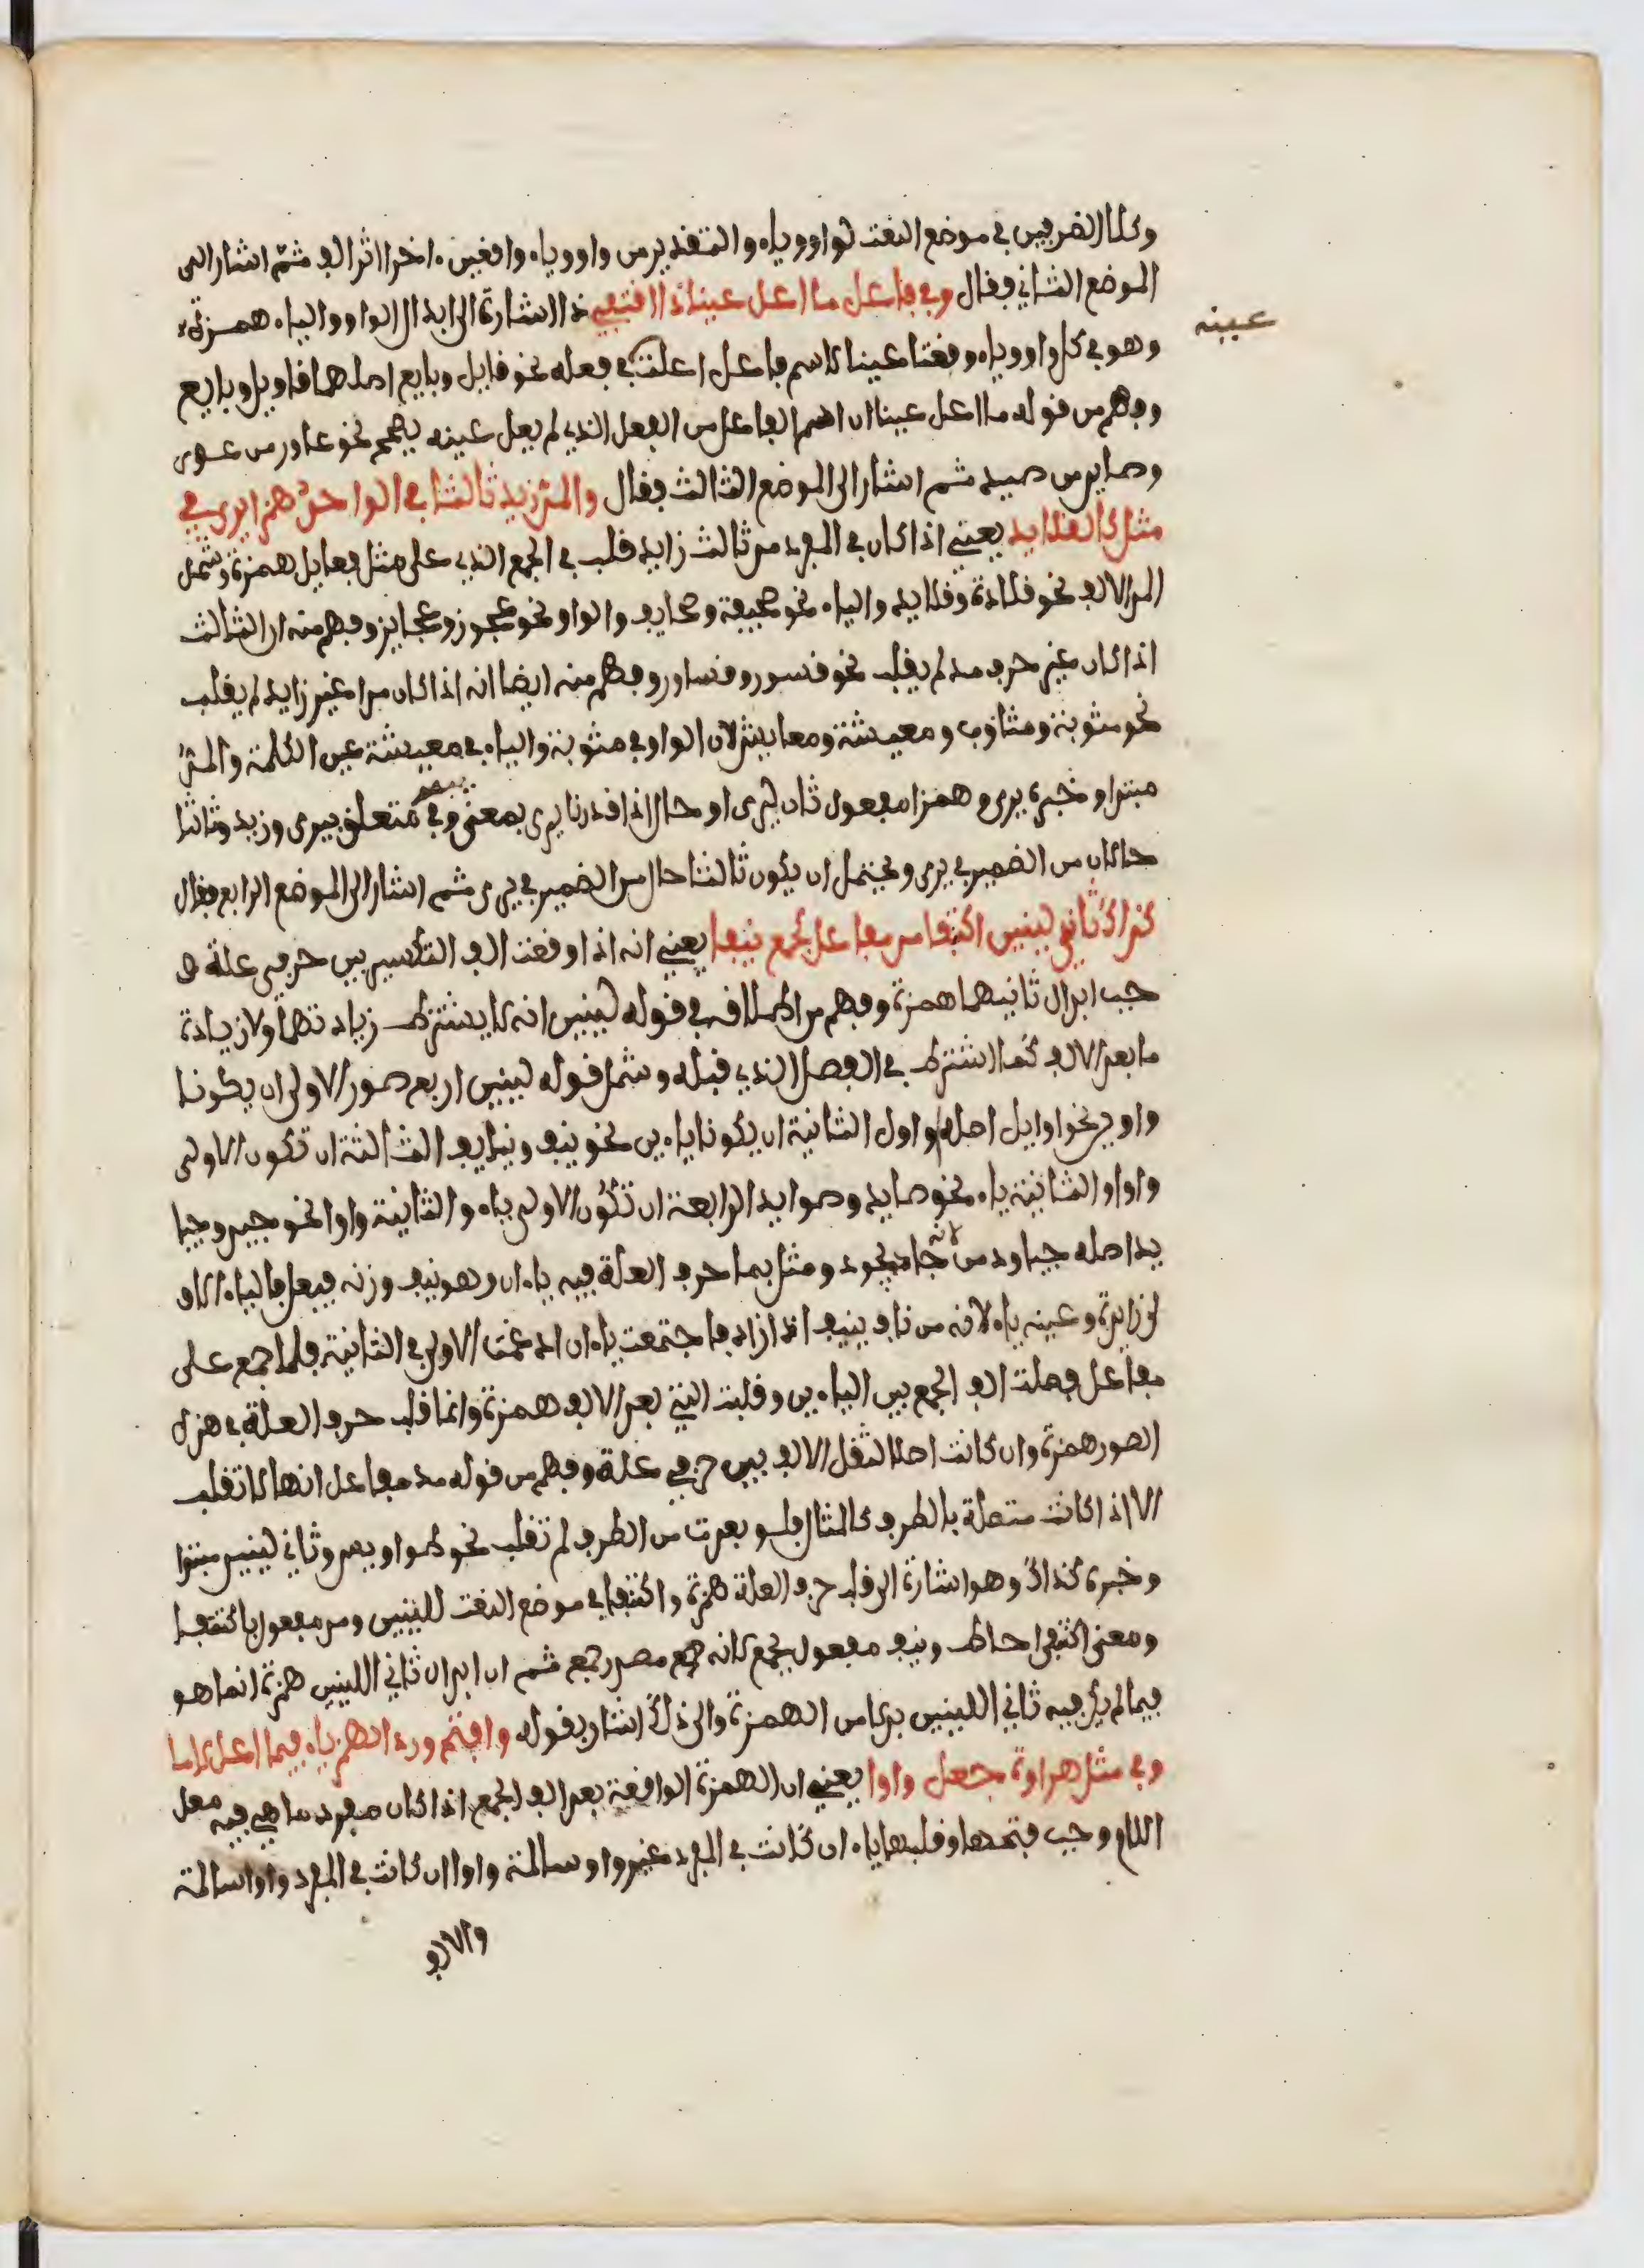 وكلا الضرفين في موضع النعت لواو وياء والتقدير من واو وياء واقعين ءاخرا اثر الف ثم اشار الى
الموضع الثاني فقال وفي فاعل ما اعل عينا ذا اقتفي ذا اشارة الى ابدال الواو والياء همزة
وهو في كل واو وياء وقعتا عينا لاسم فاعل اعلت في فعله نحو قايل وبايع اصلهما قاويل وبايع
عينه
وفهم من قوله ما اعل عينا ان اسم الفاعل من الفعل الذي لم يعل عينه يصح نحو عاور من عور
وصايد من صيد ثم اشار الى الموضع الثالث فقال والمد زيد ثالثا في الواحد همزا يرى في
مثل كالقلايد يعني اذا كان في المفرد مد ثالث زايد قلب في الجمع الذي على مثل فعايل همزة وشمل
المد الالف نحو قلادة وقلايد والياء نحو صحيفة وصحايف والواو نحو عجوز وعجايز وفهم منه ان الثالث
اذا كان غير حرف مد لم يقلب نحو قسور وقساور وفهم منه ايضا انه اذا كان مدا غير زايد لم يقلب
نحو مثوبة ومثاوب ومعيشة ومعايش لان الواو في مثوبة والياء في معيشة عين الكلمة والمد
مبتدا وخبره يرى وهمزا مفعول ثان ليرى او حال اذا قدرنا يرى بمعنى يبصر وفي متعلق بيرى وزيد وثالثا
حالان من الضمير في يرى ويحتمل ان يكون ثالثا حال من الضمير في يرى ثم اشار الى الموضع الرابع فقال
كذاك ثاني لينين اكتنفا مد مفاعل كجمع نيفا يعني انه اذا وقعت الف التكسير بين حرفي علة و
جب ابدال ثانيهما همزة وفهم من اطلاقه في قوله لينين انه لا يشترط زيادتهما ولا زيادة
ما بعد الالف كما اشترط في الفصل الذي قبله وشمل قوله لينين اربع صور الاولى ان يكونا
واوين نحو اوايل اصله واول الثانية ان يكونا ياءين نحو نيف ونيايف الثالثة ان تكون الاولى
واوا والثانية ياء نحو صايد وصوايد الرابعة ان تكون الاولى ياء والثانية واوا نحو جيد وجيا
يد اصله جياود من جاد يجود ومثل بما حرف العلة فيه ياءان وهو نيف وزنه فيعل فالياء الاو
لى زايدة وعينه ياء لانه من ناف ينيف اذا زاد فاجتمعت ياءان ادغمت الاولى في الثانية فلما جمع على
مفاعل فصلت الف الجمع بين الياءين وقلبت التي بعد الالف همزة وانما قلب حرف العلة في هذه
الصور همزة وان كانت اصلا لثقل الالف بين حرفي علة وفهم من قوله مد مفاعل انها لا تقلب
الا اذا كانت متصلة بالطرف كالمثال فلو بعدت من الطرف لم تقلب نحو طواويس وثاني لينين مبتدا
وخبره كذاك وهو اشارة الى قلب حرف العلة همزة واكتنفا في موضع النعت للينين ومد مفعول باكتنفا
ومعنى اكتنفى احاط ونيف مفعول بجمع لانه جمع مصدر جمع ثم ان ابدال ثاني اللينين همزة انما هو
فيما لم يكن فيه ثاني اللينين بدلا من الهمزة والى ذلك اشار بقوله وافتح ورد الهمز يا فيما اعل لاما
وفي مثل هراوة جعل واوا يعني ان الهمزة الواقعة بعد الف الجمع اذا كان مفرد ما هي فيه معل
اللام وجب فتحها وقلبها ياء ان كانت في المفرد غير واو سالمة واوا ان كانت في المفرد واوا سالمة
والالف